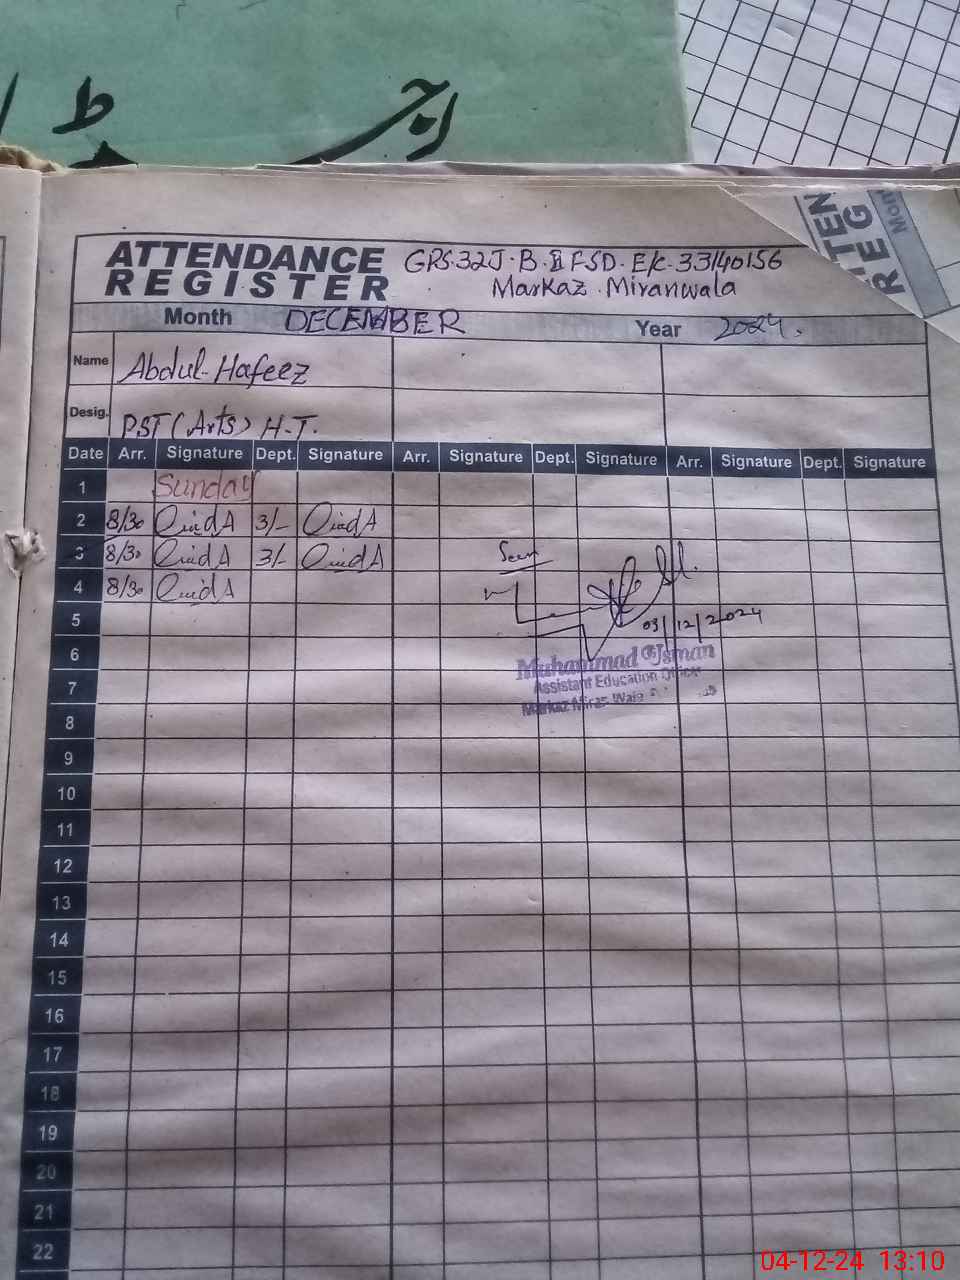 ATTENDANCE REGISTER
GPS 32 J.B. II FSD. E/c. 33140156
Markaz. Miranwala
Month DECEMBER Year 2024.
Name Abdul-Hafeez
Desig. PST (Arts) H.T.
Date Arr. Signature Dept. Signature Arr. Signature Dept. Signature Arr. Signature Dept. Signature
1 Sunday
2 8/30 3/-
3 8/30 3/-
Seen
4 8/30
5 03/12/2024
6 Muhammad Usman
Assistant Education Officer
7
8
9
10
11
12
13
14
15
16
17
18
19
20
21
22
04-12-24 13:10